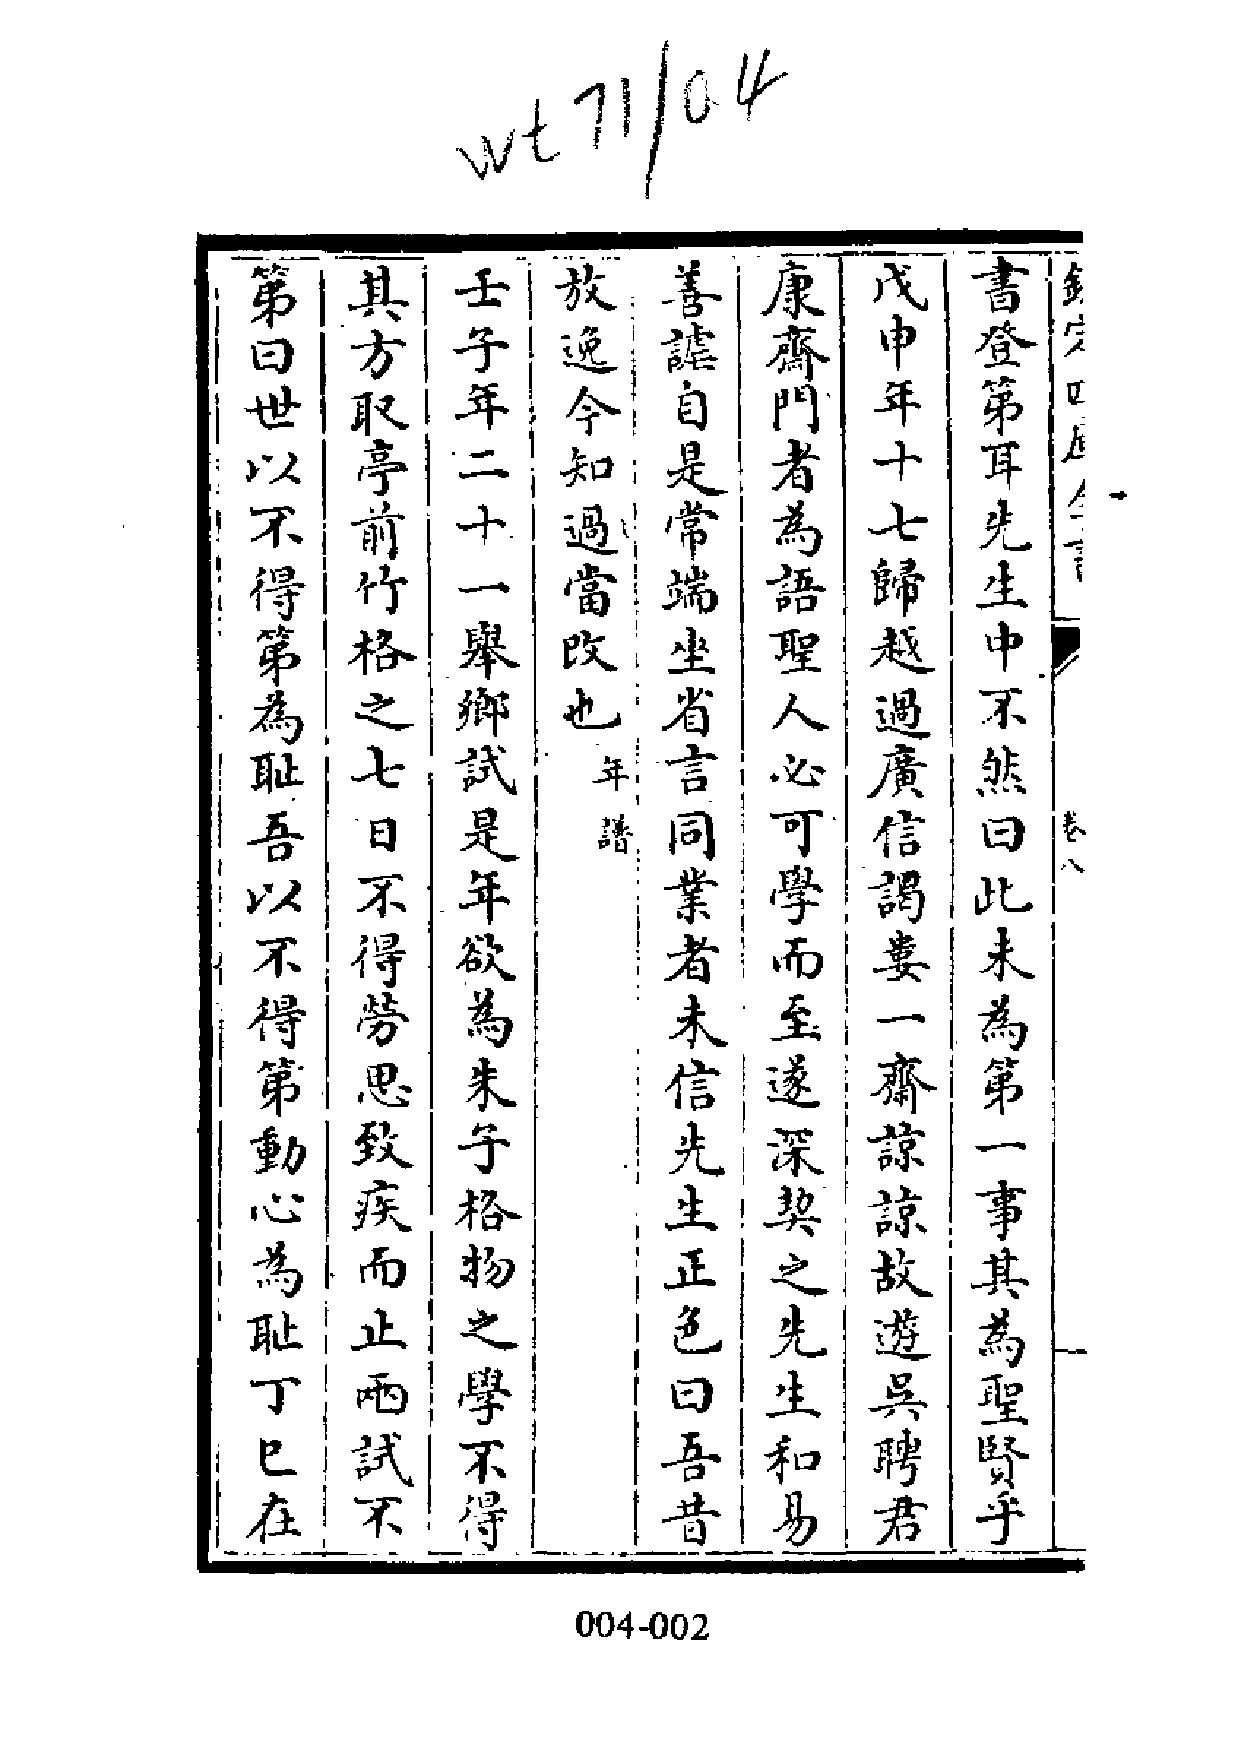 wt 71/04
欽定四庫全書
卷八
書登第耳先生中不然曰此未為第一事其為聖賢乎
戊申年十七歸越過廣信謁婁一齋諒諒故遊吳聘君
康齋門者為語聖人必可學而至遂深契之先生和易
善謔自是常端坐省言同業者未信先生正色曰吾昔
放逸今知過當改也年譜
壬子年二十一舉鄉試是年欲為朱子格物之學不得
其方取亭前竹格之七日不得勞思致疾而止兩試不
第曰世以不得第為恥吾以不得第動心為恥丁巳在
004-002